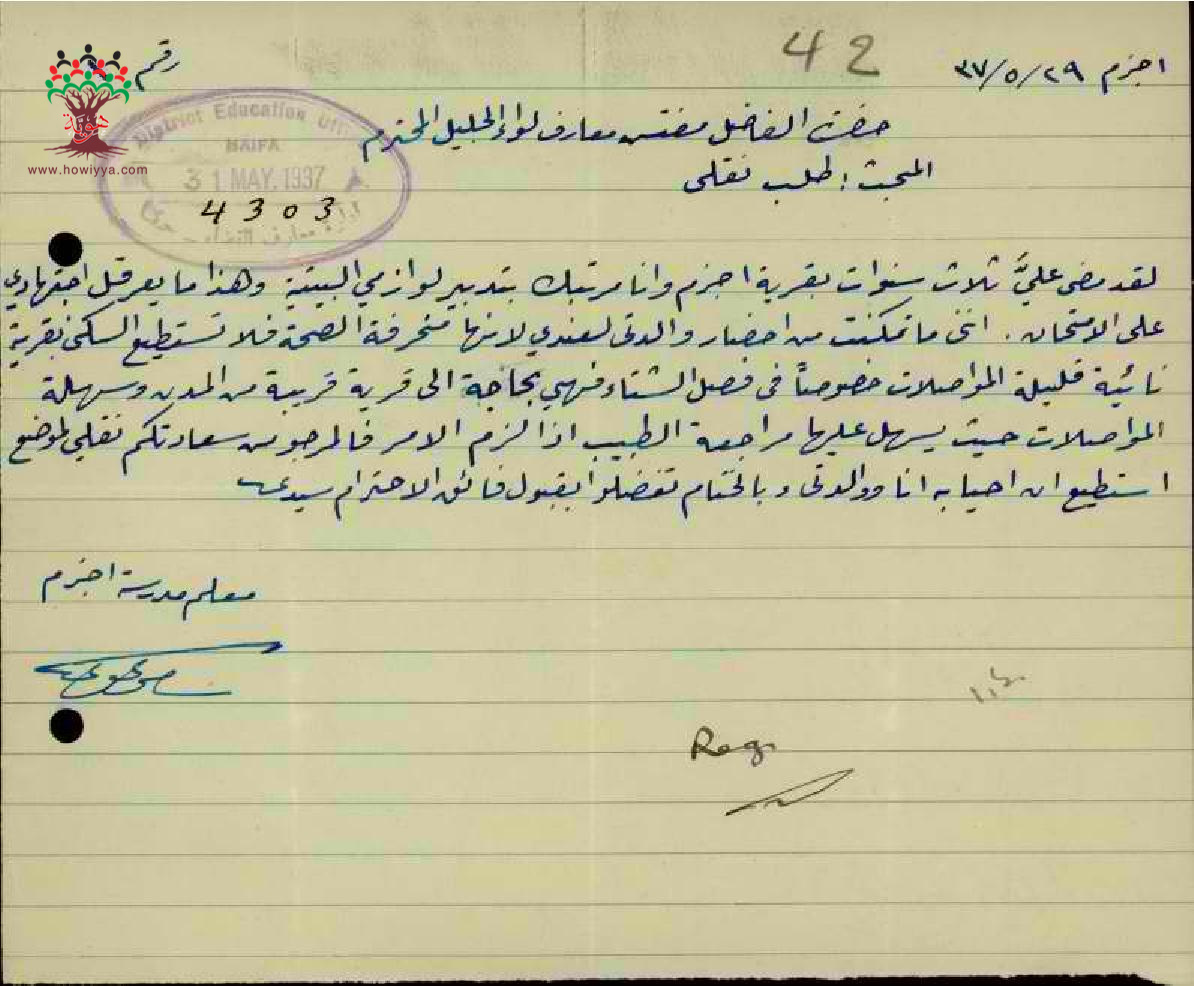 اجزم ٢٩/٥/٣٧
42
رقم
حضرة الفاضل مفتش معارف لواء الجليل المحترم
المبحث : طلب نقلي
District Education Office
HAIFA
31 MAY. 1937
4303
ادارة معارف القضاء - حيفا
www.howiyya.com
لقد مضى عليَّ ثلاث سنوات بقرية اجزم وانا مرتبك بتدبير لوازمي البيتية وهذا ما يعرقل اجتهادي
على الامتحان . انني ما تمكنت من احضار والدتي لعندي لانها منحرفة الصحة فلا تستطيع السكن بقرية
نائية قليلة المواصلات خصوصاً في فصل الشتاء فهي بحاجة الى قرية قريبة من المدن وسهلة
المواصلات حيث يسهل عليها مراجعة الطبيب اذا لزم الامر فالمرجو من سعادتكم نقلي لموضع
استطيع ان احيا به انا ووالدتي وبالختام تفضلوا بقبول فائق الاحترام سيدي
معلم مدرسة اجزم
Reg.